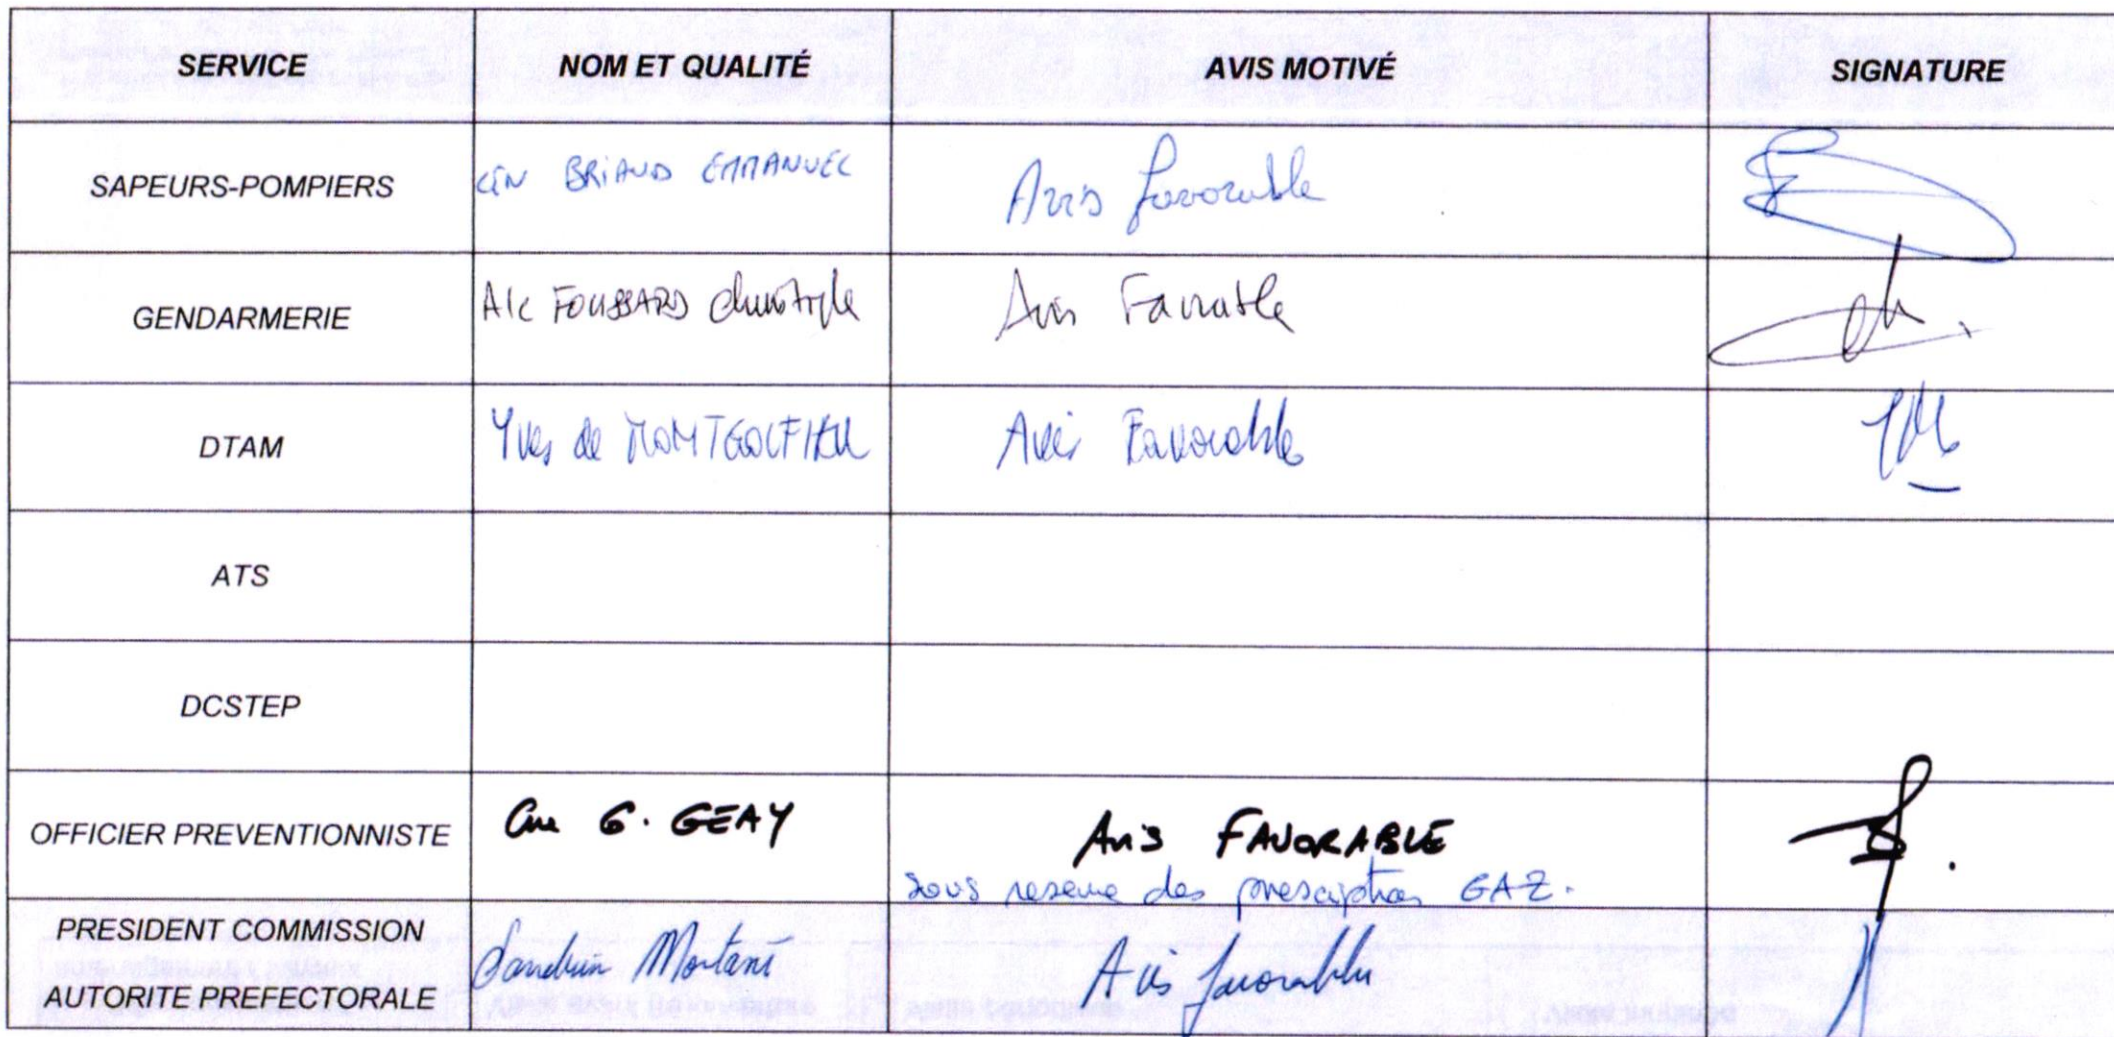 SERVICE NOM ET QUALITÉ AVIS MOTIVÉ SIGNATURE
SAPEURS-POMPIERS BRIAND EMMANUEL Avis favorable
GENDARMERIE FOUSSARD Christophe Avis Favorable
DTAM Yves de MONTGOLFIER Avis Favorable
ATS
DCSTEP
OFFICIER PREVENTIONNISTE G. GEAY Avis FAVORABLE
sous reserve des prescription GAZ.
PRESIDENT COMMISSION
AUTORITE PREFECTORALE Avis favorable